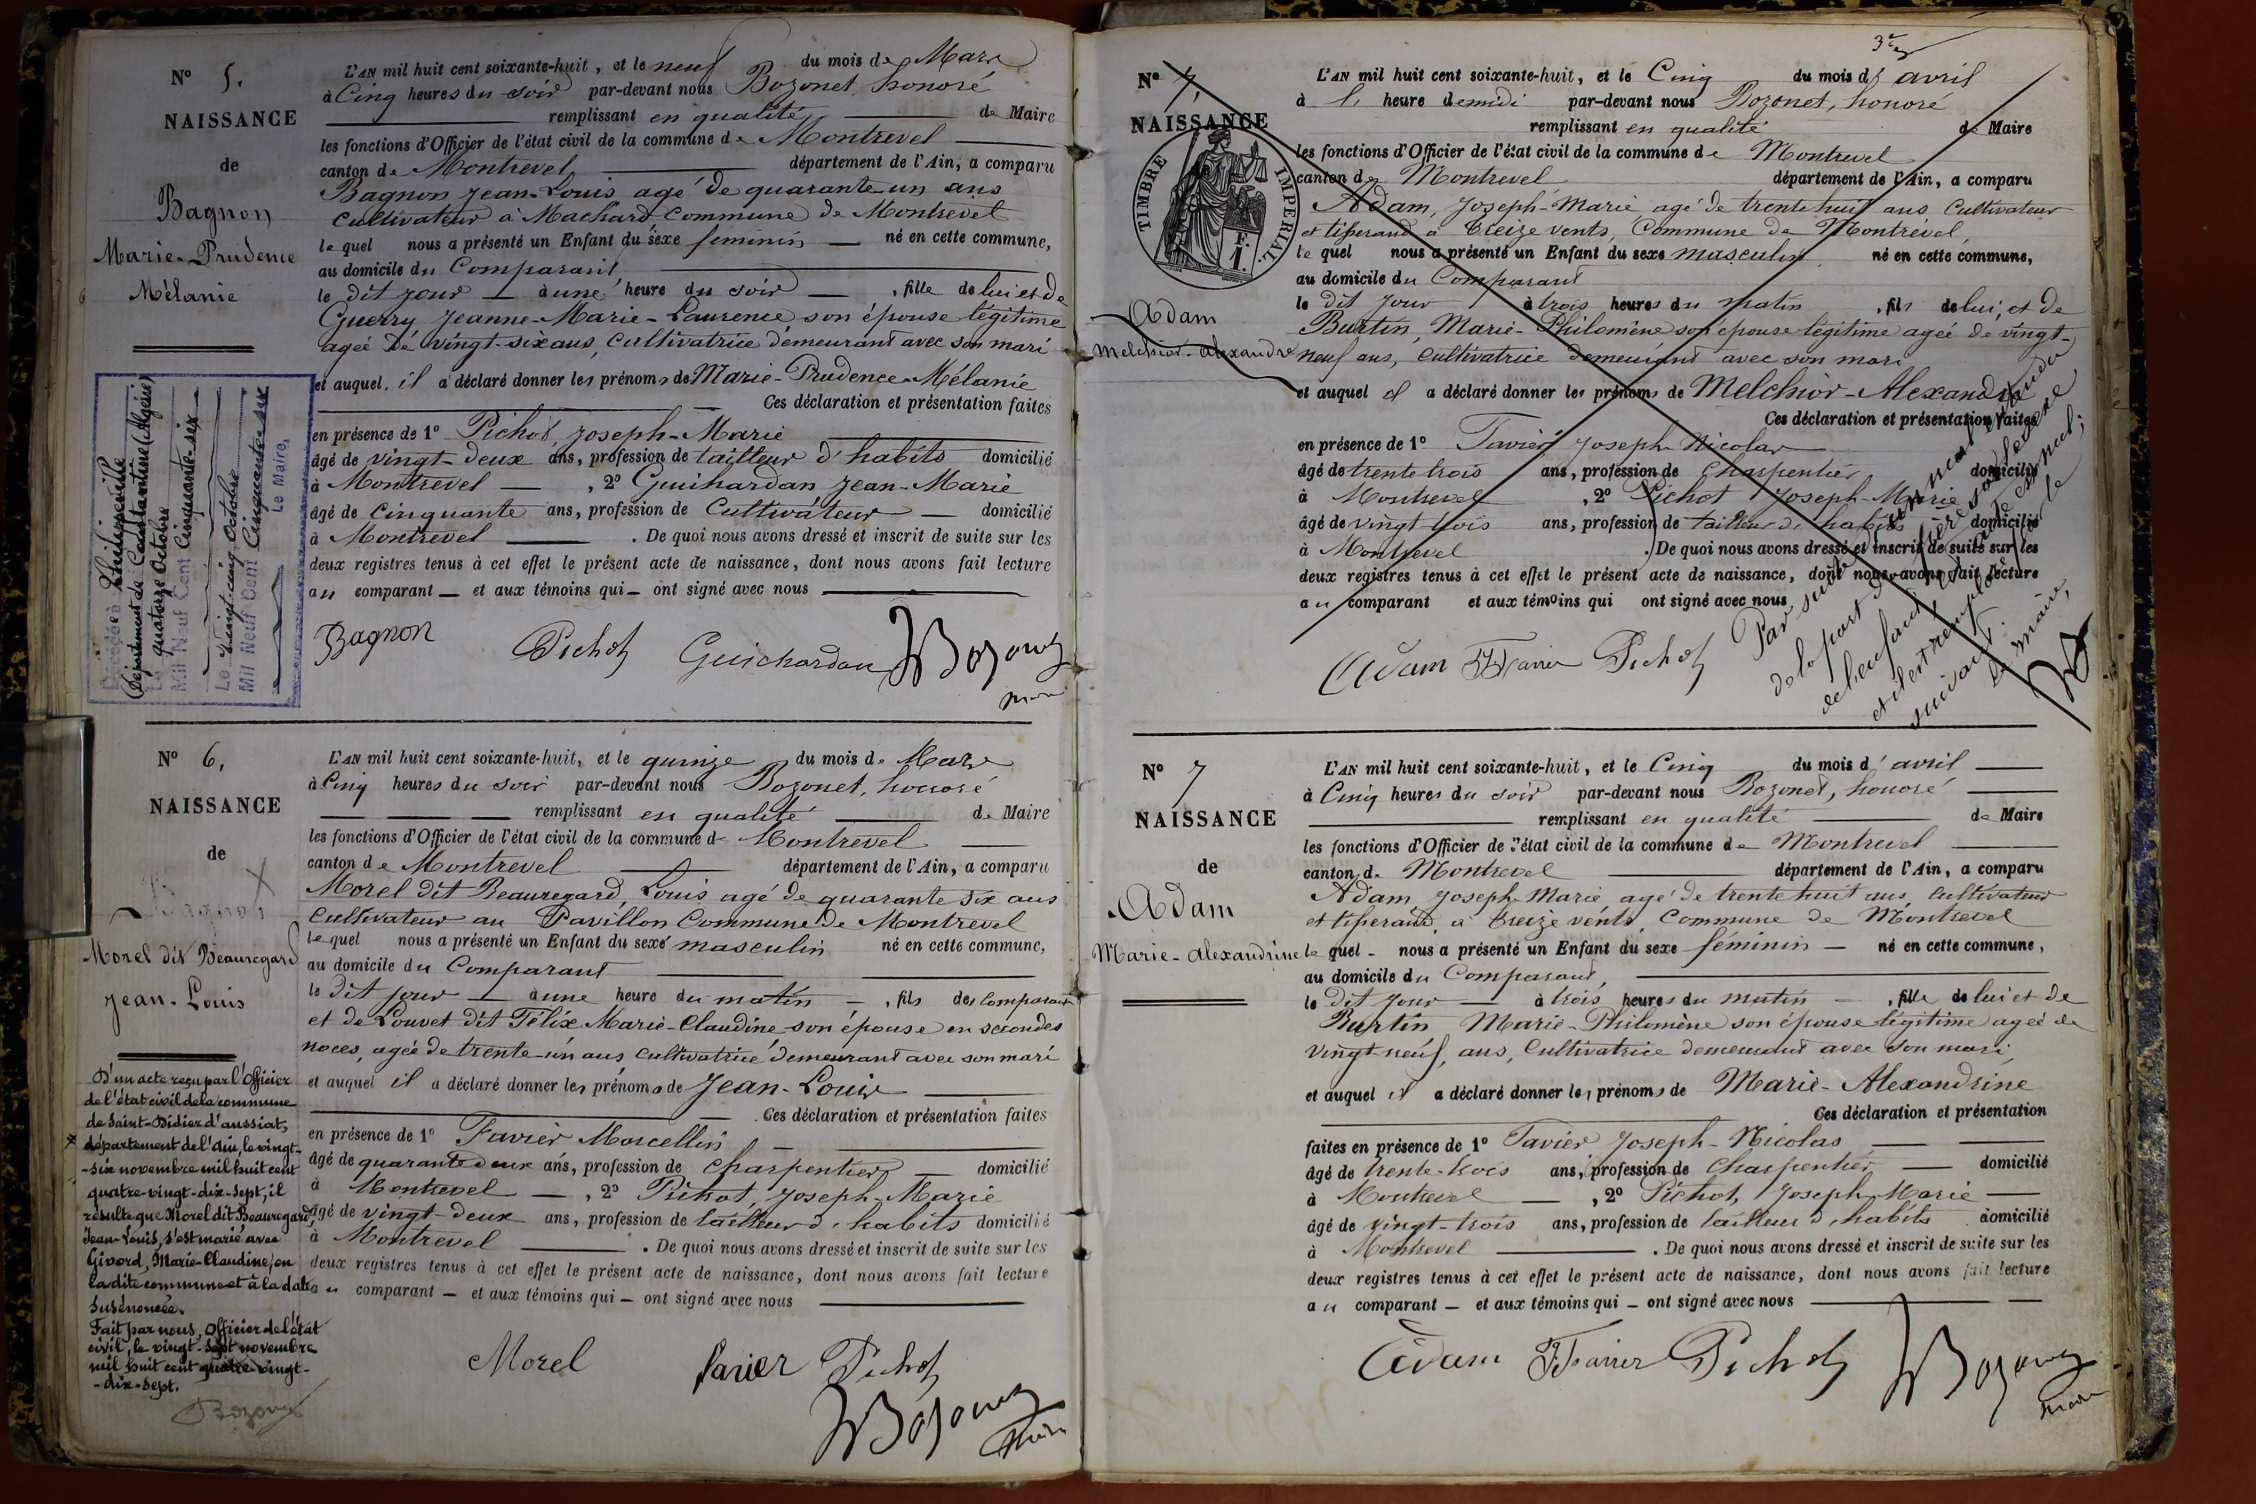 N° 5.
NAISSANCE
de
Bagnon
Marie-Prudence
Mélanie
Décédée à Philippeville
(département de Constantine (Algérie)
Le quatorze Octobre
Mil Neuf Cent Cinquante-six
Le vingt-cinq Octobre
Mil Neuf Cent Cinquante-six
Le Maire,
L'AN mil huit cent soixante-huit, et le neuf du mois de Mars
à Cinq heures du soir par-devant nous Bozonet, honoré
remplissant en qualité de Maire
les fonctions d'Officier de l'état civil de la commune de Montrevel
canton de Montrevel département de l'Ain, a comparu
Bagnon Jean-Louis agé de quarante un ans
Cultivateur à Machard commune de Montrevel
le quel nous a présenté un Enfant du sexe féminin né en cette commune,
au domicile du Comparant,
le dit jour à une heure du soir, fille de lui et de
Guerry Jeanne-Marie-Laurence son épouse légitime
agée de vingt-six ans, Cultivatrice demeurant avec son mari
et auquel il a déclaré donner les prénoms de Marie-Prudence-Mélanie
Ces déclaration et présentation faites
en présence de 1° Pichot, Joseph-Marie
âgé de vingt-deux ans, profession de tailleur d'habits domicilié
à Montrevel, 2° Guichardan Jean-Marie
âgé de Cinquante ans, profession de Cultivateur domicilié
à Montrevel. De quoi nous avons dressé et inscrit de suite sur les
deux registres tenus à cet effet le présent acte de naissance, dont nous avons fait lecture
au comparant et aux témoins qui ont signé avec nous
Bagnon Pichot Guichardan Bozonet
maire
N° 6,
NAISSANCE
de
Bagnon
Morel dit Beauregard
Jean-Louis
D'un acte reçu par l'Officier
de l'état civil de la commune
de Saint-Didier d'aussiat,
département de l'Ain, le vingt-
-six novembre mil huit cent
quatre-vingt-dix-sept, il
résulte que Morel dit Beauregard,
Jean-Louis, s'est marié avec
Givord, Marie-Claudine, en
la dite commune et à la date
susénoncée.
Fait par nous, Officier de l'état
civil, le vingt-sept novembre
mil huit cent quatre-vingt-
-dix-sept.
Bozonet
L'AN mil huit cent soixante-huit, et le quinze du mois de Mars
à Cinq heures du soir par-devant nous Bozonet, honoré
remplissant en qualité de Maire
les fonctions d'Officier de l'état civil de la commune de Montrevel
canton de Montrevel département de l'Ain, a comparu
Morel dit Beauregard, Louis agé de quarante six ans
Cultivateur au Pavillon Commune de Montrevel
le quel nous a présenté un Enfant du sexe masculin né en cette commune,
au domicile du Comparant
le dit jour à une heure du matin, fils des comparant
et de Louvet dit Félix Marie-Claudine son épouse en secondes
noces, agée de trente-un ans, cultivatrice demeurant avec son mari
et auquel il a déclaré donner les prénoms de Jean-Louis
Ces déclaration et présentation faites
en présence de 1° Favier Marcellin
âgé de quarante deux ans, profession de Charpentier domicilié
à Montrevel, 2° Pichot, Joseph-Marie
âgé de vingt-deux ans, profession de tailleur d'habits domicilié
à Montrevel. De quoi nous avons dressé et inscrit de suite sur les
deux registres tenus à cet effet le présent acte de naissance, dont nous avons fait lecture
au comparant et aux témoins qui ont signé avec nous
Morel favier Pichot
Bozonet
Maire
3e
N° 7,
NAISSANCE
TIMBRE IMPERIAL
F.
1.
Adam
Melchior-Alexandre
L'AN mil huit cent soixante-huit, et le Cinq du mois d'avril
à heure demidi par-devant nous Bozonet, honoré
remplissant en qualité de Maire
les fonctions d'Officier de l'état civil de la commune de Montrevel
canton de Montrevel département de l'Ain, a comparu
Adam, Joseph-Marie agé de trente huit ans Cultivateur
et tisserand à Treize vents, Commune de Montrevel,
le quel nous a présenté un Enfant du sexe masculin né en cette commune,
au domicile du Comparant
le dit jour à trois heures du matin, fils de lui, et de
Burtin, Marie-Philomène son épouse légitime agée de vingt-
neuf ans, Cultivatrice demeurant avec son mari
et auquel il a déclaré donner les prénoms de Melchior-Alexandre
Ces déclaration et présentation faites
en présence de 1° Favier Joseph Nicolas
âgé de trente trois ans, profession de Charpentier domicilié
à Montrevel, 2° Pichot Joseph-Marie
âgé de vingt trois ans, profession de tailleur d'habits domicilié
à Montrevel. De quoi nous avons dressé et inscrit de suite sur les
deux registres tenus à cet effet le présent acte de naissance, dont nous avons fait lecture
au comparant et aux témoins qui ont signé avec nous
Adam Favier Pichot
Par suite
de la part du père sur le sexe
de l'enfant, est nul;
et il est remplacé par le
suivant.
Le maire,
N° 7
NAISSANCE
de
Adam
Marie-Alexandrine
L'AN mil huit cent soixante-huit, et le Cinq du mois d'avril
à Cinq heures du soir par-devant nous Bozonet, honoré
remplissant en qualité de Maire
les fonctions d'Officier de l'état civil de la commune de Montrevel
canton de Montrevel département de l'Ain, a comparu
Adam Joseph Marie agé de trente huit ans, Cultivateur
et tisserand, à Treize vents, Commune de Montrevel
le quel nous a présenté un Enfant du sexe féminin né en cette commune,
au domicile du Comparant,
le dit jour à trois heures du matin, fille de lui et de
Burtin Marie-Philomène son épouse légitime agée de
vingt neuf ans, Cultivatrice demeurant avec son mari,
et auquel il a déclaré donner les prénoms de Marie-Alexandrine
Ces déclaration et présentation
faites en présence de 1° Favier Joseph-Nicolas
âgé de trente-trois ans, profession de Charpentier domicilié
à Montrevel, 2° Pichot, Joseph Marie
âgé de vingt-trois ans, profession de tailleur d'habits domicilié
à Montrevel. De quoi nous avons dressé et inscrit de suite sur les
deux registres tenus à cet effet le présent acte de naissance, dont nous avons fait lecture
au comparant et aux témoins qui ont signé avec nous
Adam Favier Pichot Bozonet
maire